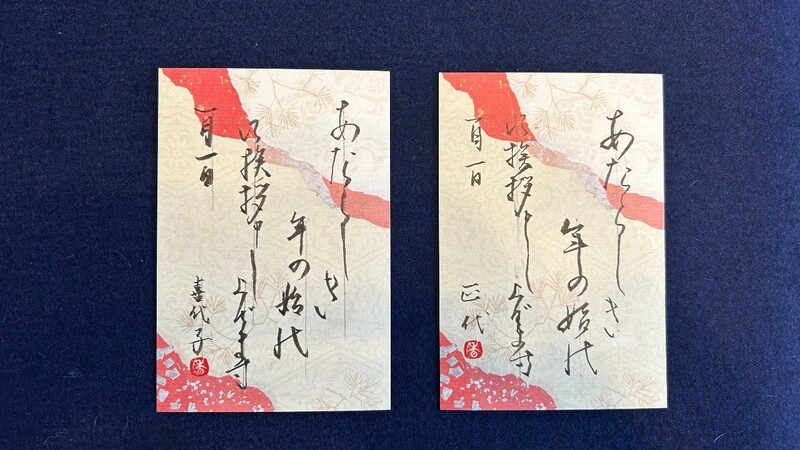 あたらしき
年の始の
御挨拶申し上げます
一月一日
喜代子
あたらしき
年の始の
御挨拶申し上げます
一月一日
正代